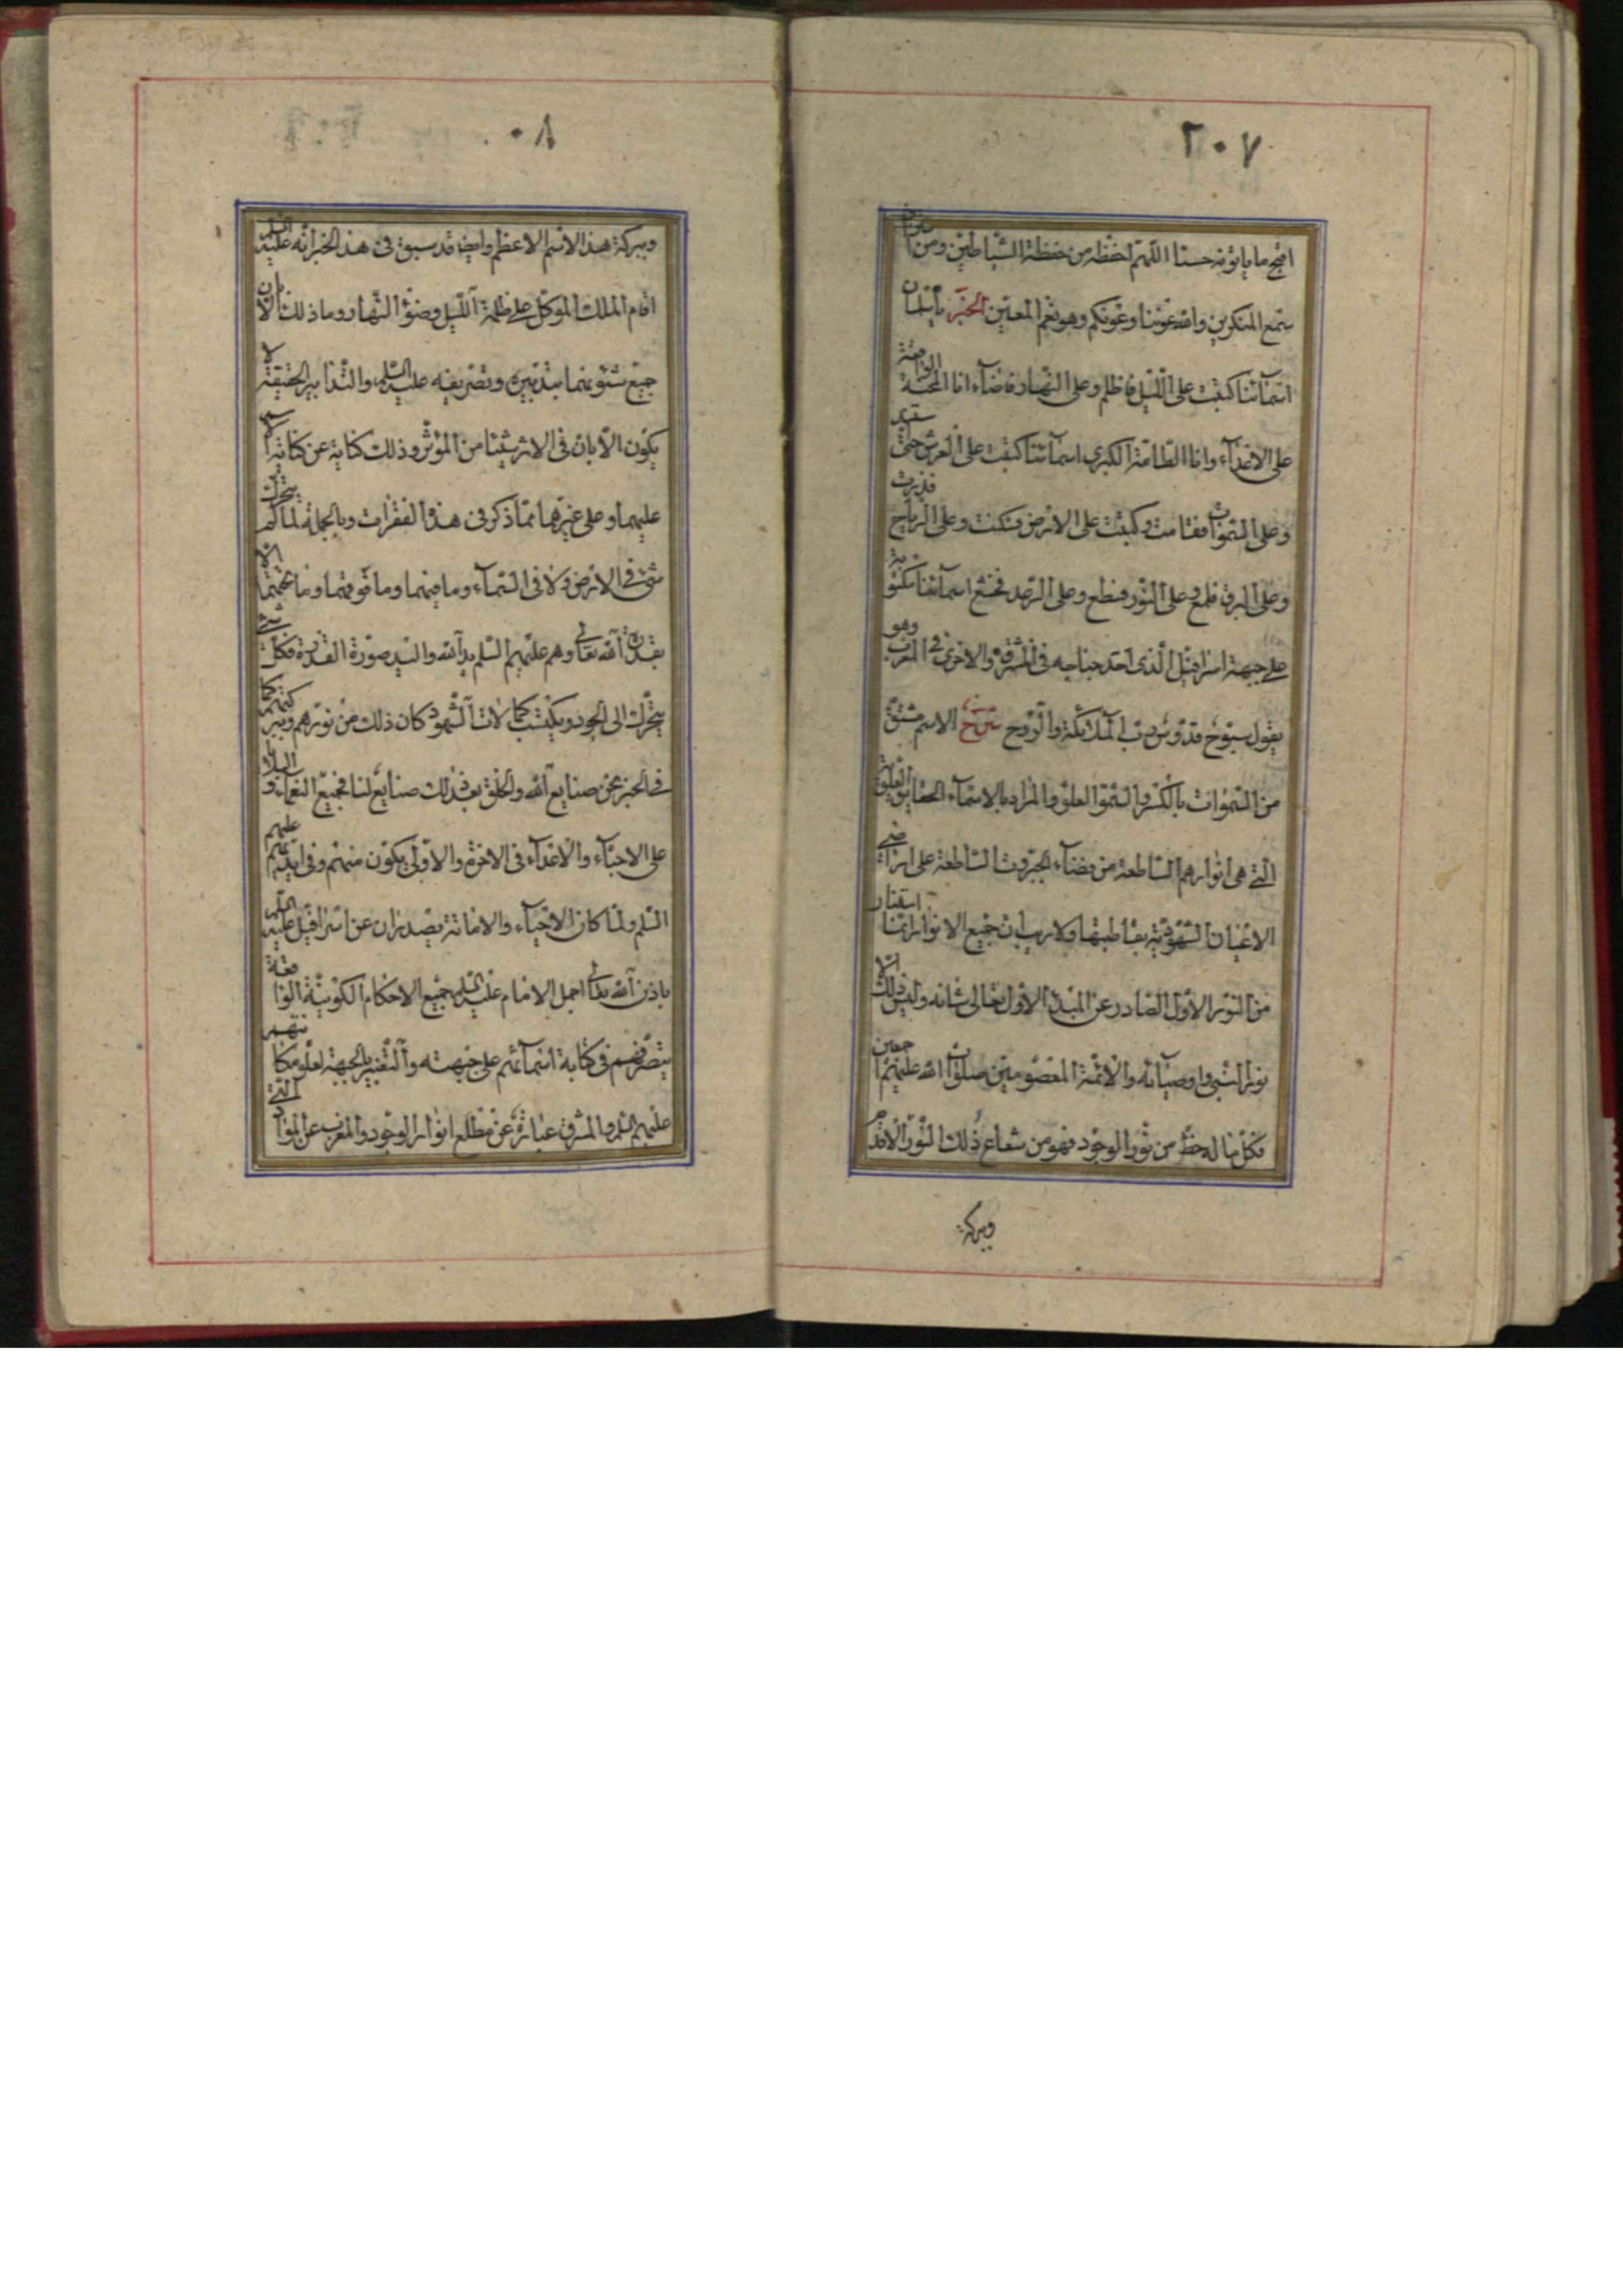 ٢٠٧
اقبح ما يأتونه حسنا اللهم احفظه من حفظة الشياطين ومن
سمع المنكرين والله عوننا وعونكم وهو نعم المعين الخبر يا سلمان
اسمآئنا كتبت على الليل فاظلم وعلى النهار فاضآء انا المحنة الواقعة
على الاعدآء وانا الطامة الكبرى اسمآئنا كتبت على العرش حتى استقر
وعلى السموات فقامت وكتبت على الارض فسكنت وعلى الرياح فذرت
وعلى البرق فلمع وعلى النور فسطع وعلى الرعد فخشع اسمآئنا مكتوبة
على جبهة اسرافيل الذى احد جناحيه فى المشرق والاخرى فى المغرب وهو
يقول سبوح قدوس رب الملائكة والروح شرح الاسم مشتق
من السموات بالكسر والسمو العلو والمراد بالاسمآء الحقايق العلوية
التى هى انوارهم الساطعة من فضآء الجبروت الساطعة على اراضى
الاعيان الشهودية بقاطبتها ولا ريب ان جميع الانوار انما استنار
من النور الاول الصادر عن المبدء الاول تعالى شانه وليس ذلك الا
نور النبى واوصيآئه والائمة المعصومين صلوات الله عليهم اجمعين
فكل ما له حظ من نور الوجود فهو من شعاع ذلك النور الاقدم
وببركة
٠٨
وببركة هذا الاسم الاعظم وايضا قد سبق فى هذا الخبر انه عليه السلم
اقام الملك الموكل على ظلمة الليل وضوء النهار وما ذلك الا بان
جميع شئونهما بتدبيره وتصريفه عليه السلم والتدابير الحقيقة لا
يكون الا بان فى الاثر شيئا من المؤثر وذلك كناية عن كتابة
عليهما وعلى غيرهما مما ذكر فى هذه الفقرات وبالجملة لما لم يتحرك
شئ فى الارض ولا فى السمآء وما بينهما وما فوقهما وما تحتهما الا
بقدرة الله تعالى وهم عليهم السلم يد الله واليد صورة القدرة فكل شئ
يتحرك الى الوجود ويكتسب كمالات الشهود كان ذلك من نورهم وببركتهم كما
فى الخبر نحن صنايع الله والخلق بعد ذلك صنايع لنا فجميع النعمآء و البلايا
على الاحبآء والاعدآء فى الاخرة والاولى يكون منهم وفى ايديهم عليهم
السلم ولما كان الاحيآء والاماتة يصدران عن اسرافيل عليه السلم
باذن الله تعالى اجمل الامام عليه السلم جميع الاحكام الكونية الواقعة
بتصرفهم فى كتابة اسمآئهم على جبهته والتعبير بالجبهة لعلو مكانتهم
عليهم السلم والمشرق عبارة عن مطلع انوار الوجود والمغرب عن المواد التى